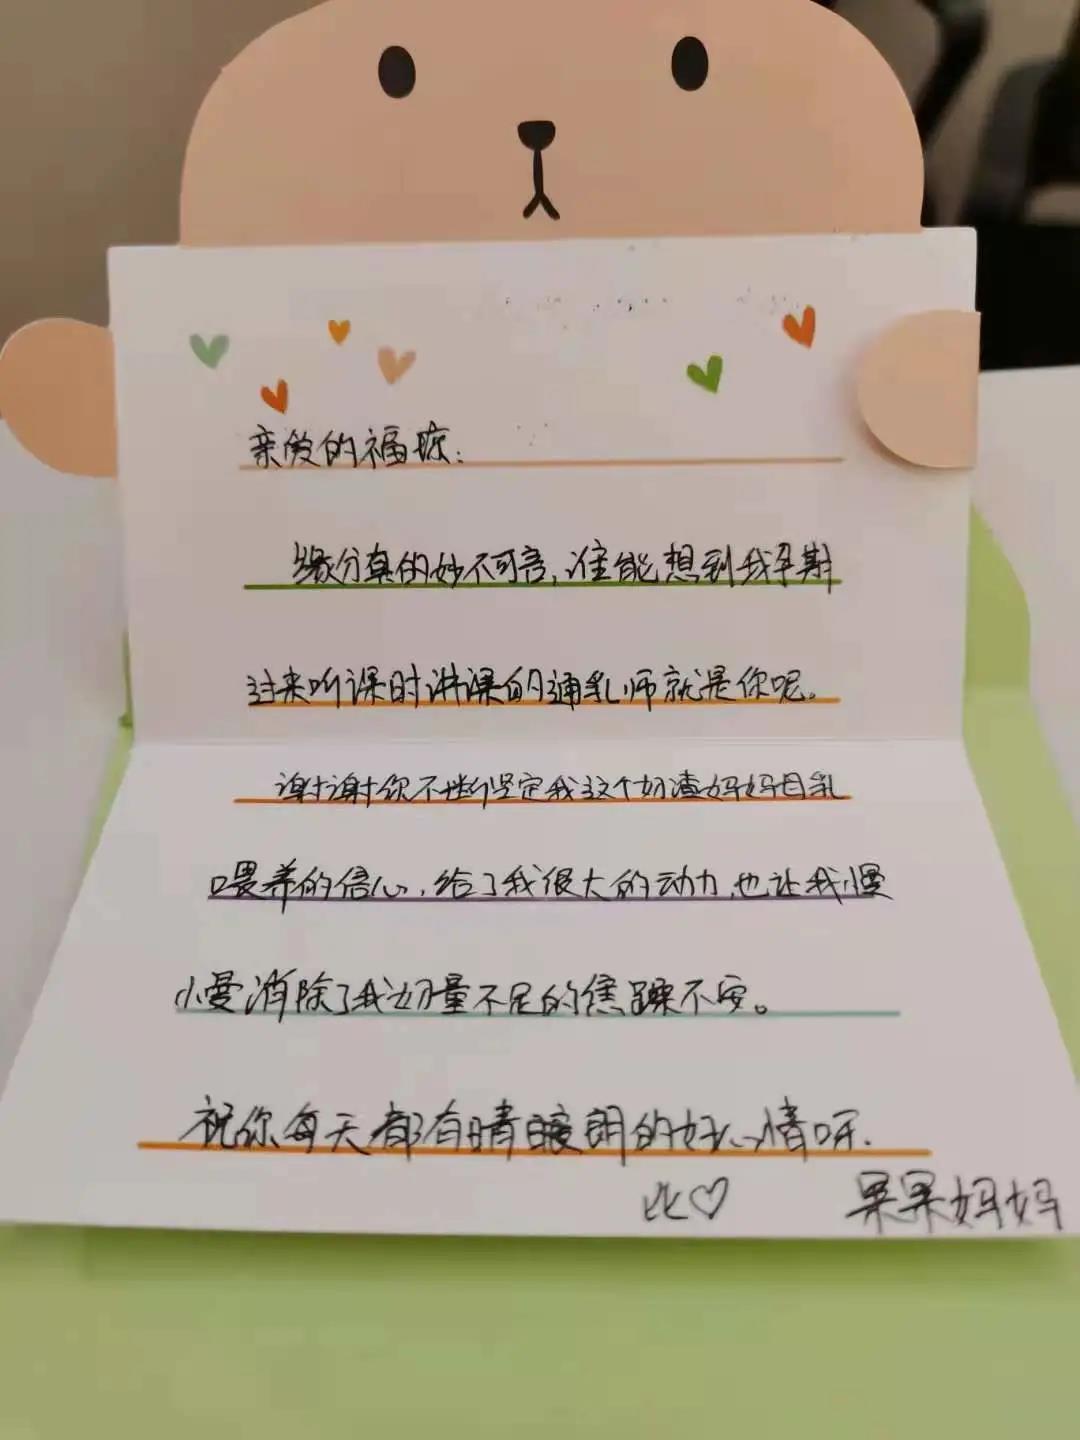 亲爱的福琼：
缘分真的妙不可言，谁能想到我孕期
过来听课时讲课的通乳师就是你呢。
谢谢你不断坚定我这个奶渣妈妈母乳
喂养的信心，给了我很大的动力，也让我慢
慢消除了我奶量不足的焦躁不安。
祝你每天都有晴暖朗的好心情呀.
比♡
果果妈妈